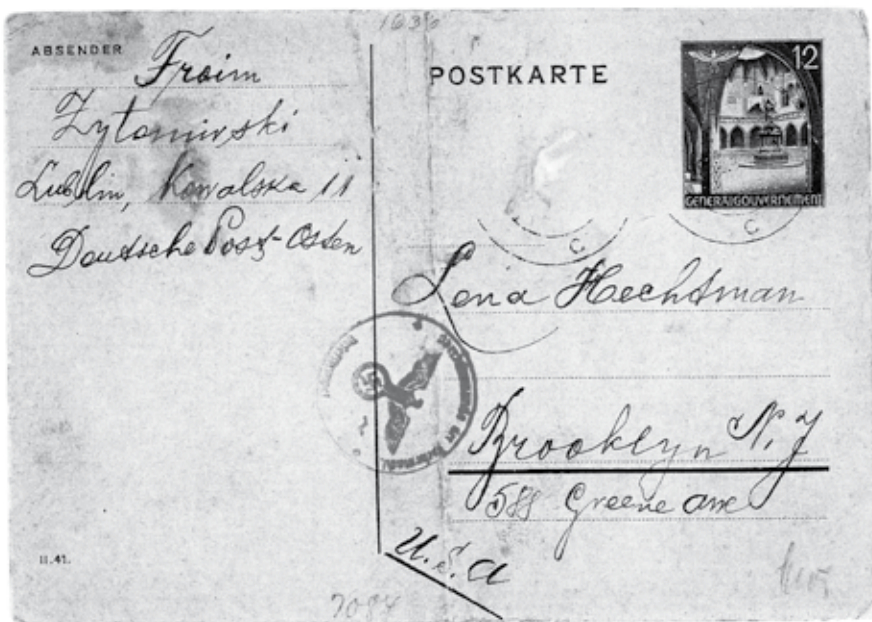 ABSENDER
Froim
Zytomirski
Lublin, Kowalska 11
Deutsche Post-Osten
II.41.
POSTKARTE
12
GENERALGOUVERNEMENT
C
C
Lena Hechtman
Brooklyn N. Y
588 Greene ave
U.S.A
7084